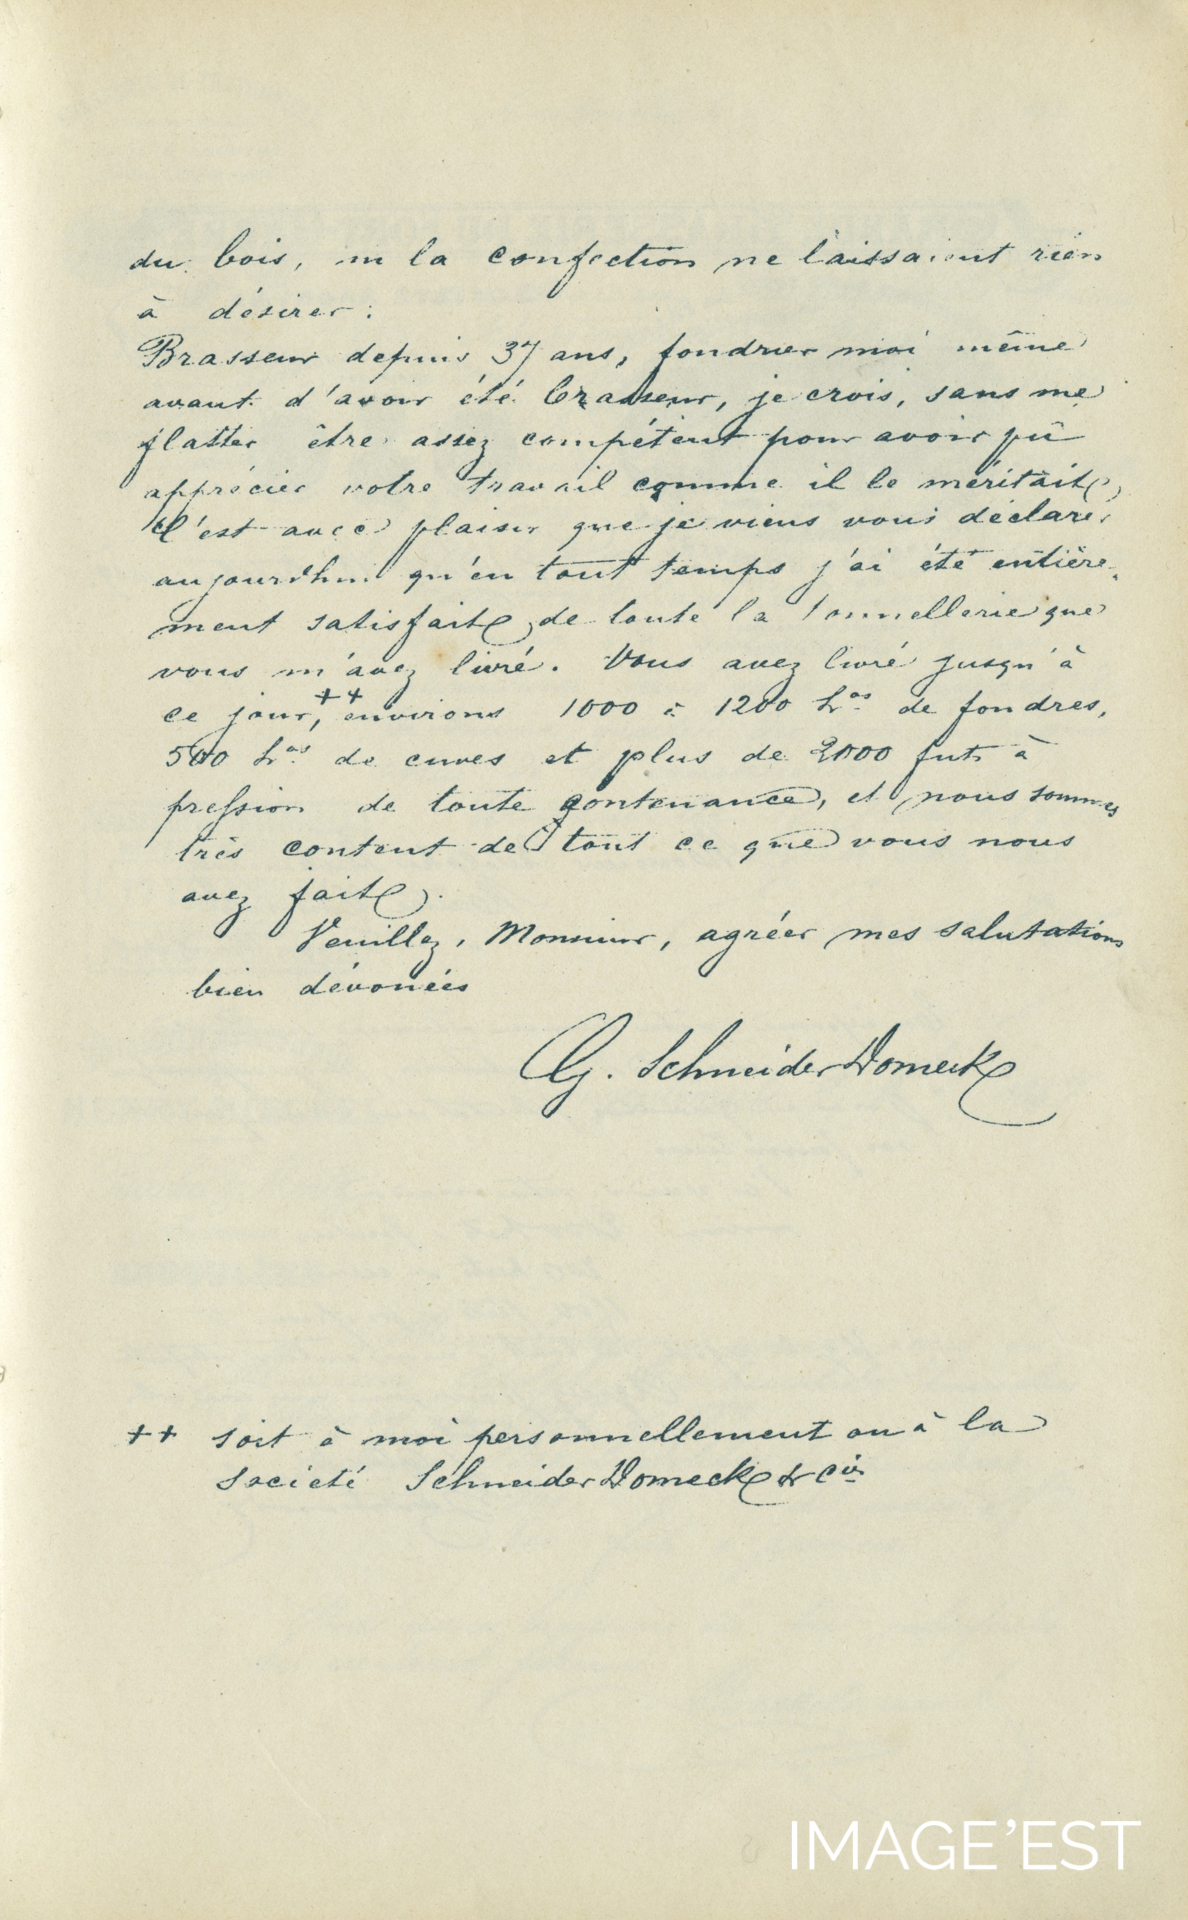 du bois, ni la confection ne laissaient rien
à désirer.
Brasseur depuis 37 ans, foudrier moi même
avant d'avoir été brasseur, je crois, sans me
flatter être assez compétent pour avoir pû
apprécier votre travail comme il le méritait,
C'est avec plaisir que je viens vous déclarer
aujourd'hui qu'en tout temps j'ai été entière-
ment satisfait de toute la tonnellerie que
vous m'avez livré. Vous avez livré jusqu'à
ce jour, ++ environs 1000 à 1200 hos de foudres,
500 hos de cuves et plus de 2000 futs à
pression de toute contenance, et nous sommes
très content de tout ce que vous nous
avez fait.
Veuillez, Monsieur, agréer mes salutations
bien dévouées
G. Schneider Domeck
++ soit à moi personnellement ou à la
société Schneider Domeck & cie
IMAGE'EST